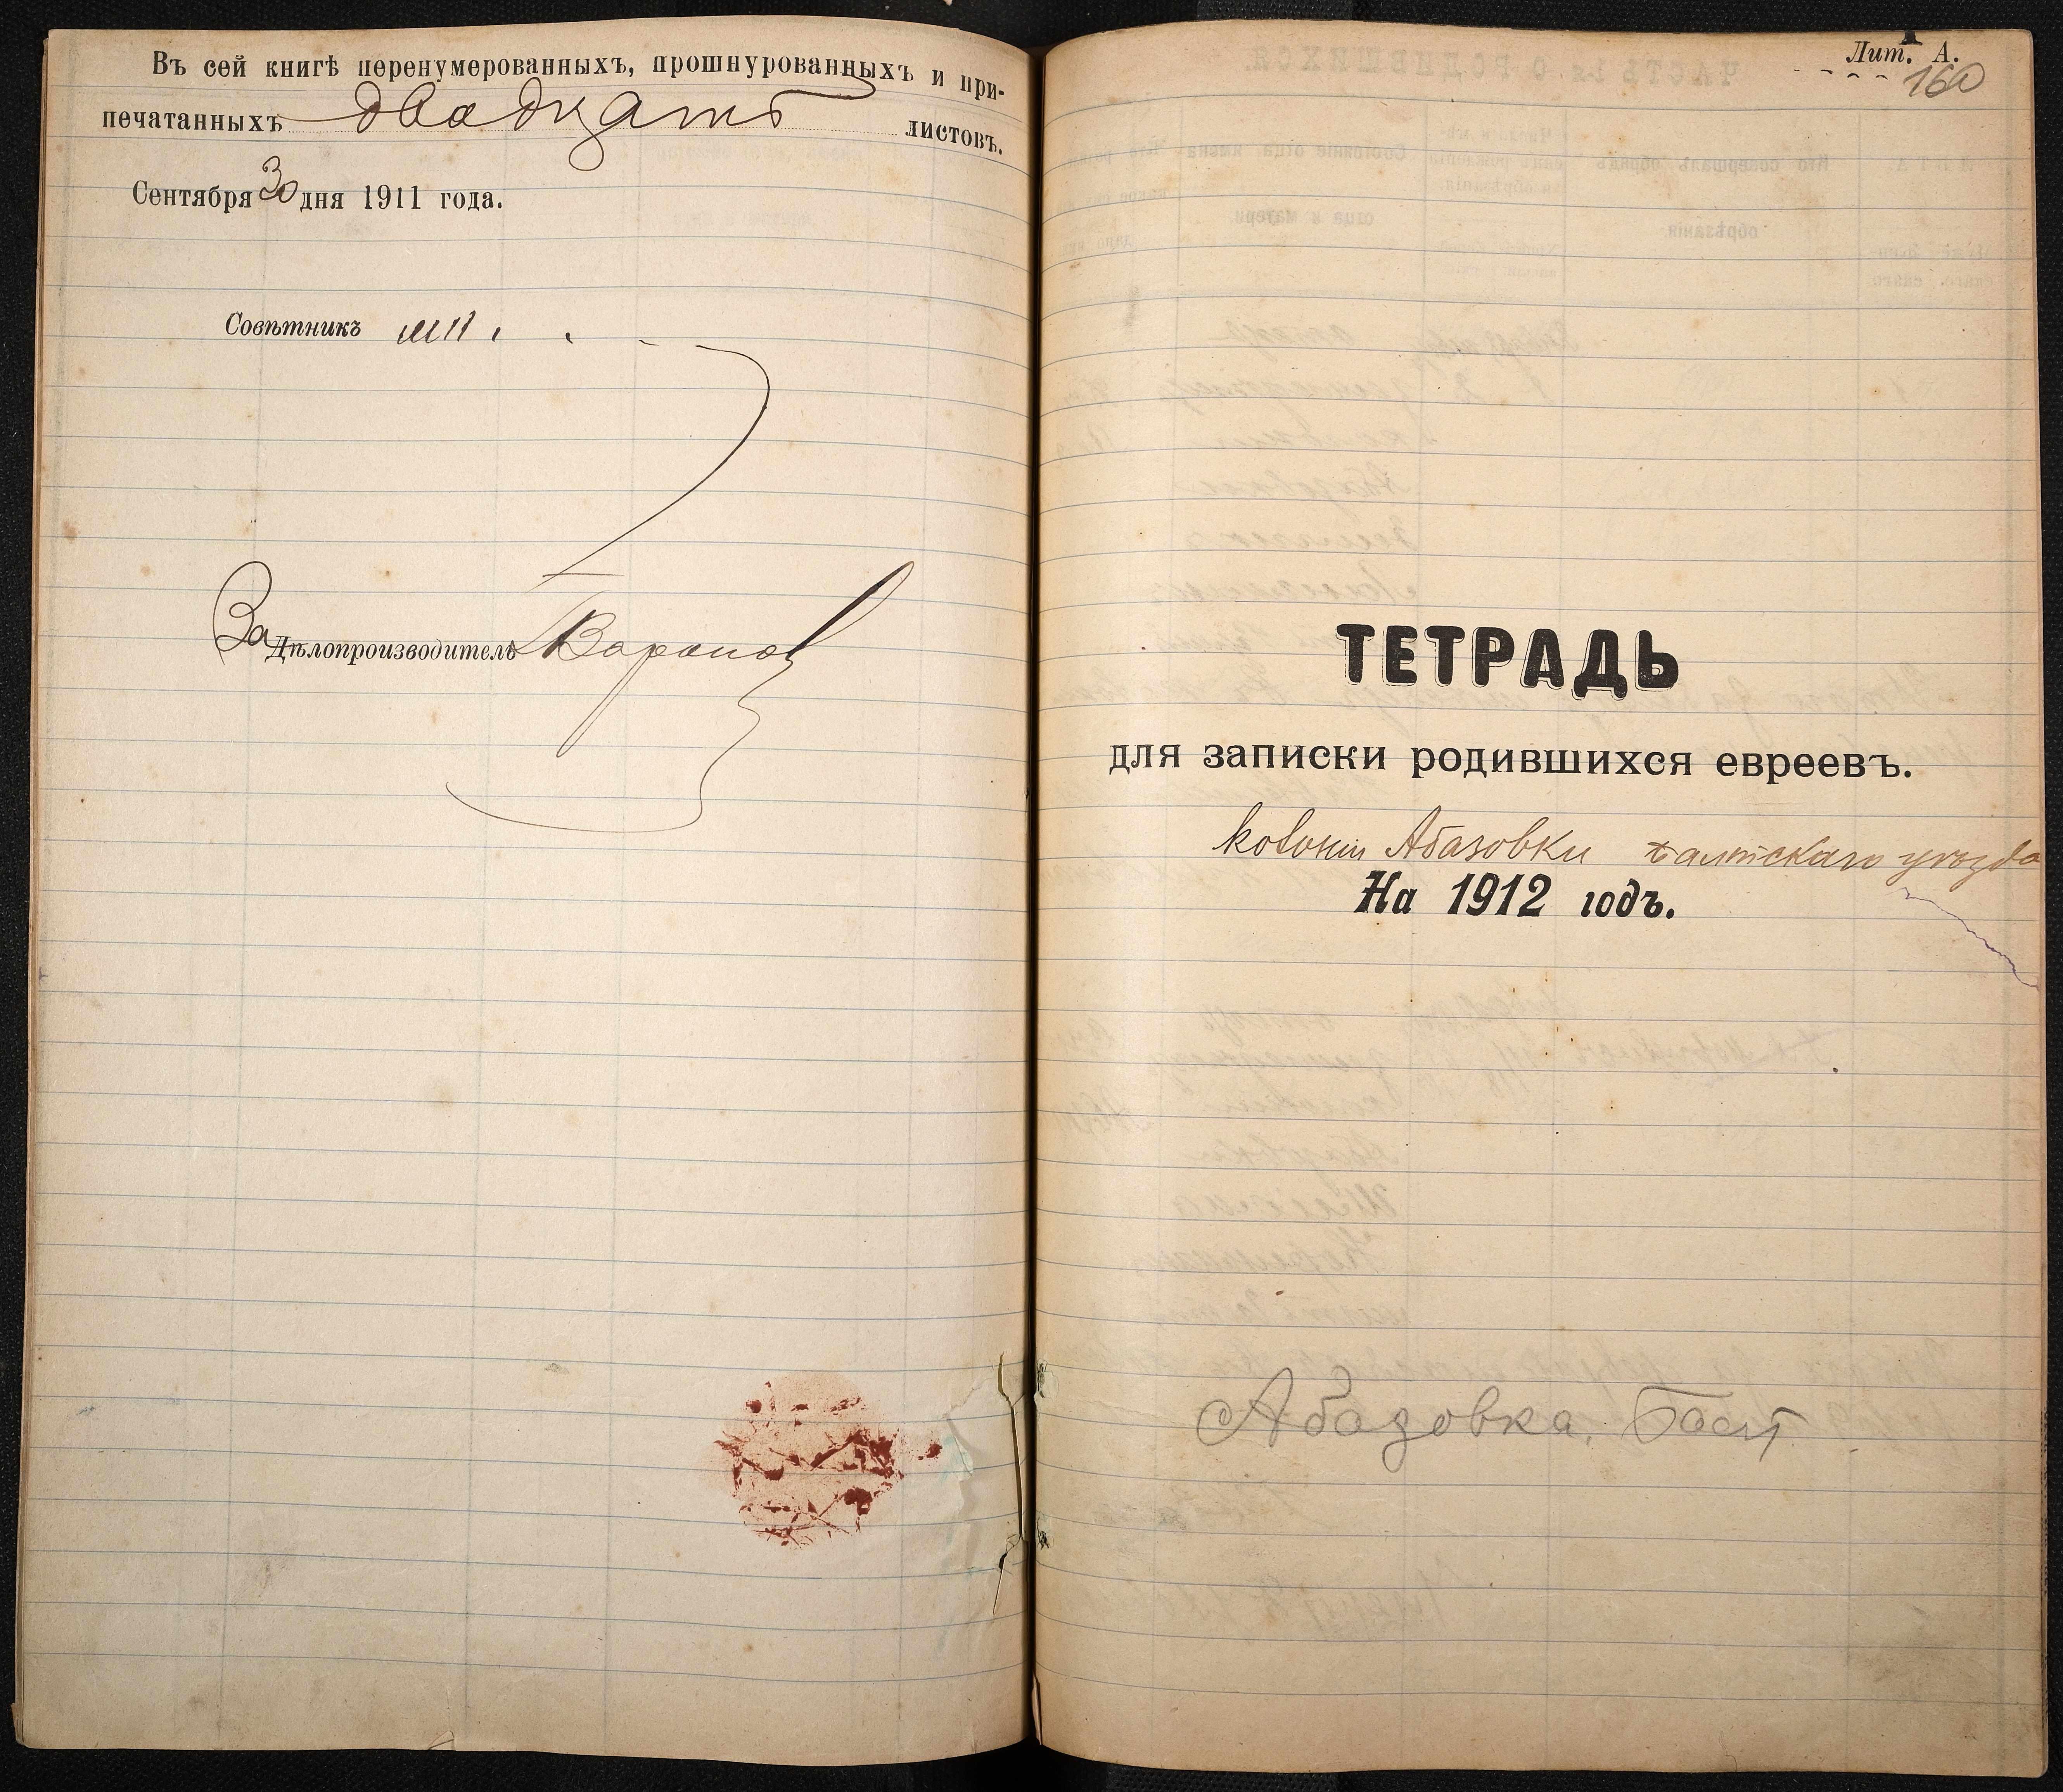 Въ сей книгѣ перенумерованныхъ, прошнурованныхъ и при-
печатанныхъ двадцать листовъ.
Сентября 30 дня 1911 года.
Совѣтникъ
За Дѣлопроизводитель
Лит. А.
160
ТЕТРАДЬ
для записки родившихся евреевъ.
колонiи Абазовки Балтскаго уѣзда
На 1912 годъ.
Абазовка. Балт